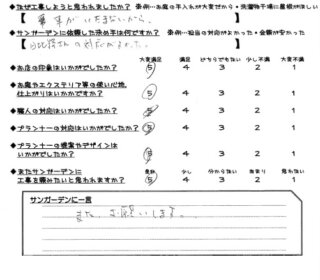 ◆なぜ工事しようと思われましたか？ 案例…お庭の手入れが大変だから・洗濯物干場に屋根がほしい
【 車が いたまないから。 】
◆サンガーデンに依頼した決め手は何ですか？ 案例…担当の対応がよかった・金額が安かった
【 の対応がよかった。 】
大変満足 満足 どちらでもない 少し不満 大変不満
◆お店の印象はいかがでしたか？ 5 4 3 2 1
◆お庭やエクステリア等の使い心地、
仕上がりはいかがですか？ 5 4 3 2 1
◆職人の対応はいかがでしたか？ 5 4 3 2 1
◆プランナーの対応はいかがでしたか？ 5 4 3 2 1
◆プランナーの提案やデザインは
いかがでしたか？ 5 4 3 2 1
◆またサンガーデンに 是非 少し 分からない あまり 思わない
工事を頼みたいと思われますか？ 5 4 3 2 1
サンガーデンに一言
また、お願いします。